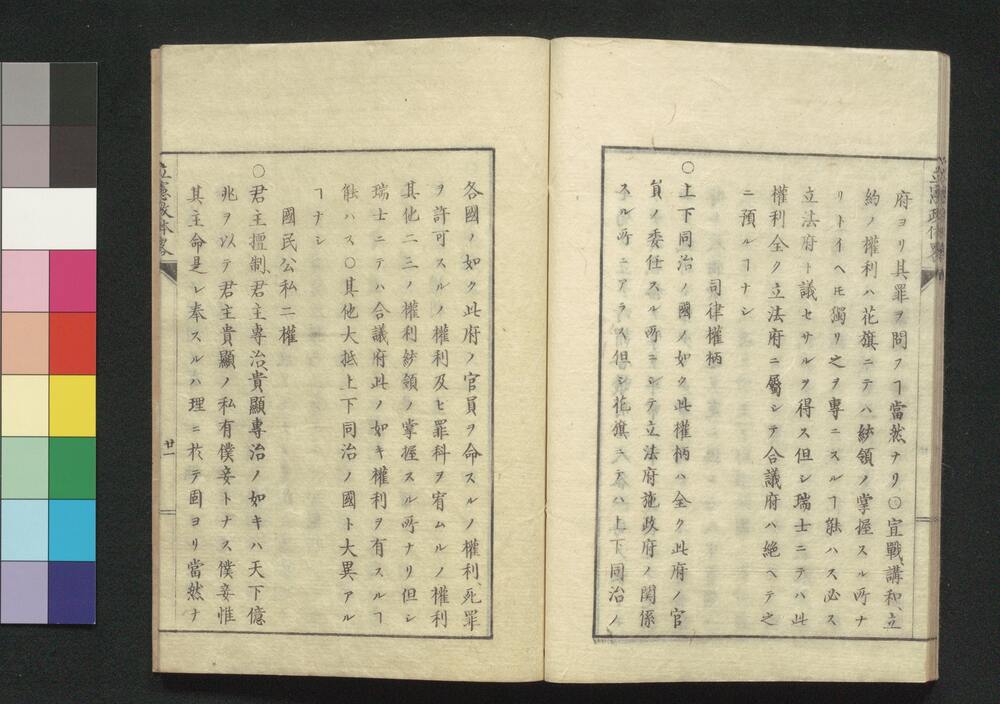 府ヨリ其罪ヲ問フヿ當然ナリ○宣戰講和、立
約ノ權利ハ花旗ニテハ統領ノ掌握スル所ナ
リトイヘ𪜈獨リ之ヲ專ニスルヿ能ハス必ス
立法府ト議セサルヲ得ス但シ瑞士ニテハ此
權利全ク立法府ニ屬シテ合議府ハ絕ヘテ之
ニ預ルヿナシ
司律權柄
○上下同治ノ國ノ如ク此權柄ハ全ク此府ノ官
員ノ委任スル所ニシテ立法府施政府ノ関係
スル所ニアラス但シ花旗ニテハ上下同治ノ
各國ノ如ク此府ノ官員ヲ命スルノ權利、死罪
ヲ許可スルノ權利及ヒ罪科ヲ宥ムルノ權利
其他二三ノ權利統領ノ掌握スル所ナリ但シ
瑞士ニテハ合議府此ノ如キ權利ヲ有スルヿ
能ハス○其他大抵上下同治ノ國ト大異アル
ヿナシ
國民公私二權
○君主擅制、君主專治、貴顯專治ノ如キハ天下億
兆ヲ以テ君主貴顯ノ私有僕妾トナス僕妾惟
其主命是レ奉スルハ理ニ於テ固ヨリ當然ナ
立憲政体略
廿一